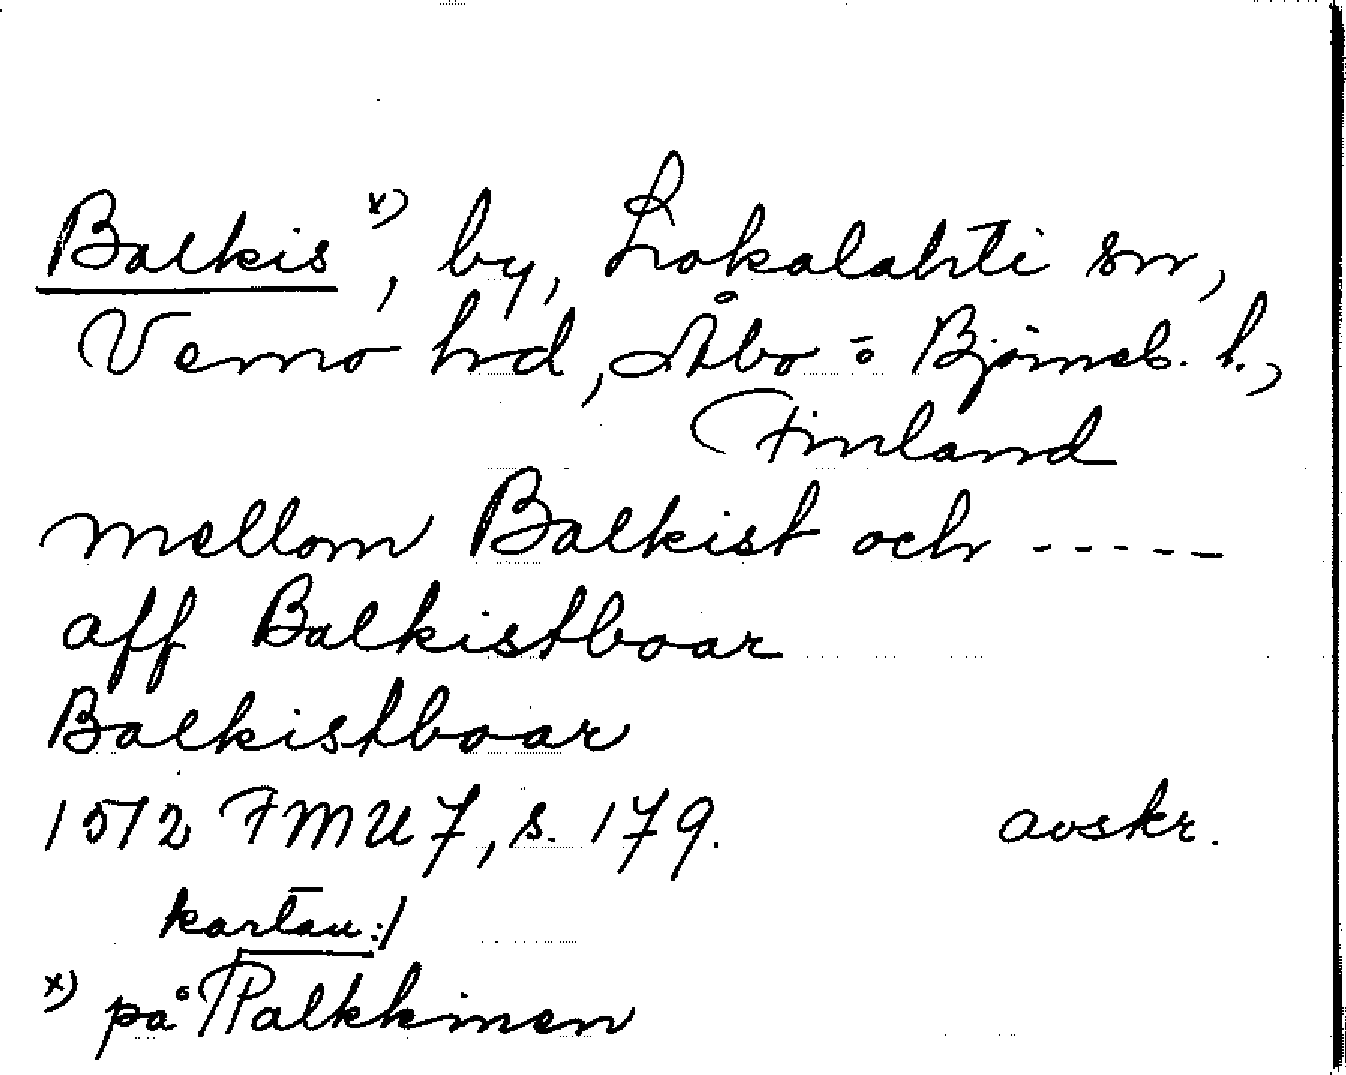 Balkis x), by, Lokalahti sn,
Vemo hrd, Åbo = Björneb. l.,
Finland
mellom Balkist och -----
aff Balkistboar
Balkistboar
1572 FMU 7, s. 179. avskr.
kartan:/
x) på /Palkkinen